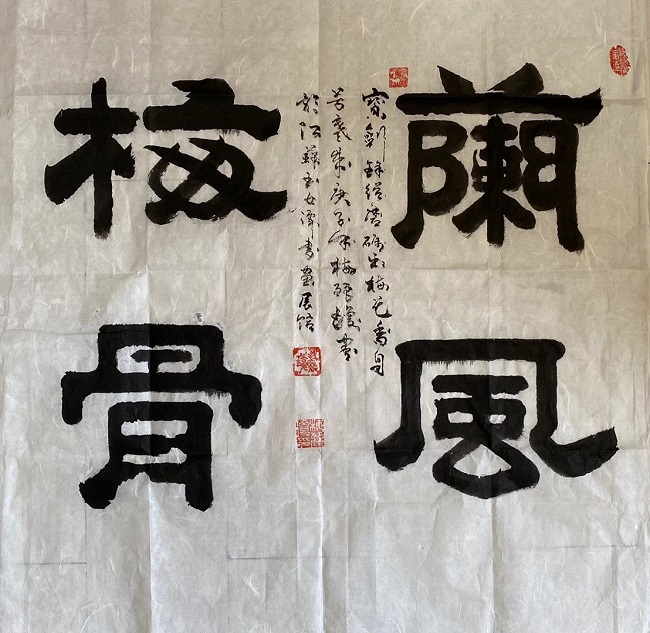 蘭風
寶劍鋒從磨礪出梅花香自
苦寒來庚子年梅書
於江蘇玉女潭書畫展館
梅骨